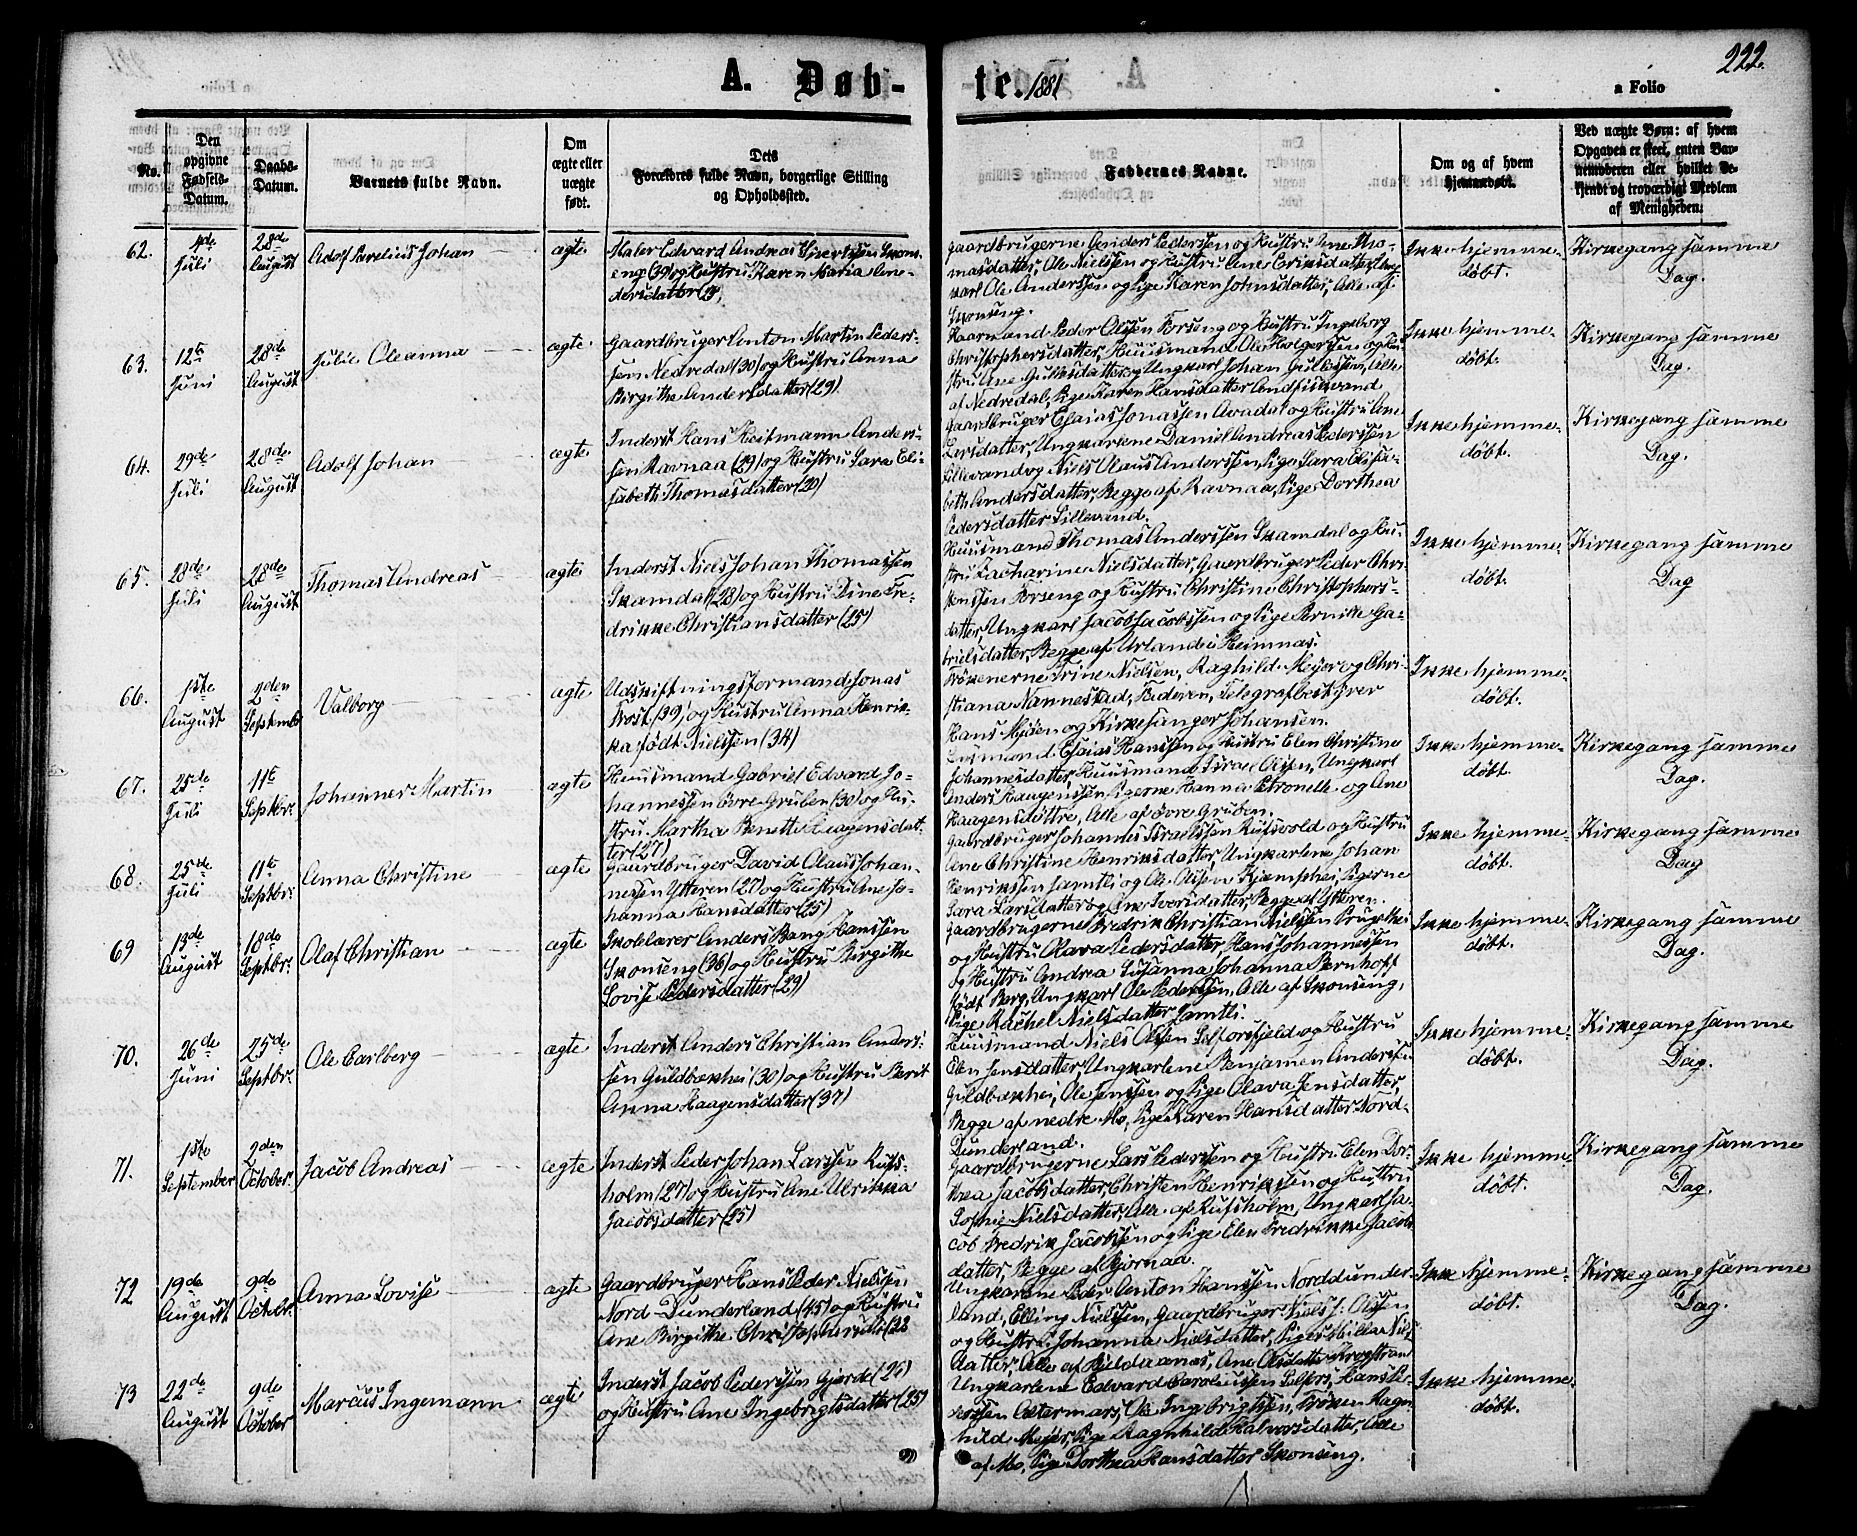 222.
A. Døb-
te. 1881
a Folio
No.
Den opgivne Fødsels-Datum.
Daabs-Datum.
Barnets fulde Navn.
Om ægte eller uægte født.
Dets Forældres fulde Navn, borgerlige Stilling og Opholdssted.
Faddernes Navne.
Om og af hvem hjemmedøbt.
Ved uægte Børn: af hvem Opgaven er skeet, enten Barnemoderen eller hvilket bekjendt og troværdigt Medlem af Menigheden.
62.
4de Juli
28de August
Adolf Johan
ægte
Maler Edvard Andreas
eng (39) og Hustru Karen Maria An-
dersdatter
Gaardbrugerne Anders Pederssen og Hustru Ane Tho-
masdatter, Ole Nielssen og Hustru Ane Eriksdatter, Ung-
karl Ole Anderssen og Pige Karen Johnsdatter, Alle af
Skonseng.
Ikke hjemme-
døbt.
Kirkegang samme
Dag.
63.
12te Juni
28de August
Julie Oleanna
ægte
Gaardbruger Anton Martin Peders-
sen Nedredal (30) og Hustru Anna
Birgithe Andersdatter (29)
Kaarmand Peder Olssen Forseng og Hustru Ingeborg
Christophersdatter, Huusmand Ole Holgerssen og Hu-
stru Ane og Ungkarl Johan Gullessen, Alle
af Nedredal, Pige Karen Hansdatter
Ikke hjemme-
døbt.
Kirkegang samme
Dag.
64.
29de Juli
28de August
Adolf Johan
ægte
Inderst Hans Heitmann Anders-
sen Ravnaa (29) og Hustru Sara Eli-
sabeth Thomasdatter (20)
Gaardbruger Esaias Jonassen Avadal og Hustru Ane
Larsdatter, Ungkarlene Daniel Andreas Pederssen
Lillevand og Niels Olaus Anderssen, Pige Sara Elisa-
beth Andersdatter, Begge af Ravnaa, Pige Dorthea
Pedersdatter Lillevand.
Ikke hjemme-
døbt.
Kirkegang samme
Dag.
65.
28de Juli
28de August
Thomas Andreas
ægte
Inderst Niels Johan Thomassen
Skamdal (28) og Hustru Dine Fre-
drikke Christiansdatter (25)
Huusmand Thomas Anderssen Skamdal og Hu-
stru Zacharine Nielsdatter, Gaardbruger Peder Chri-
stenssen Forseng og Hustru Christine Christophers-
datter, Ungkarl Jacob Jacobssen og Pige Pernille Ga-
brielsdatter, Begge af Urland i Hemnæs.
Ikke hjemme-
døbt.
Kirkegang samme
Dag
66.
1ste August
2den Septembr
Valborg
ægte
Udskiftningsformand Jonas
Frost (39) og Hustru Anna Henrik-
ka født Nielssen (34)
Frøkenerne Trine Nielsen, Raghild Meyer og Chri-
stiana Nannestad, Faderen, Telegrafbestyrer
Hans Mjøen og Kirkesanger Johansen.
Ikke hjemme-
døbt.
67.
25de Juli
11te Septbr.
Johannes Martin
ægte
Huusmand Gabriel Edvard Jo-
hannessen øvre Gruben (30) og Hu-
stru Martha Benette Haagensdat-
ter (27)
Huusmand Esaias Hanssen og Hustru Elen Christine
Johannesdatter, Huusmand Israel Olssen, Ungkarl
Anders Haagenssen, Pigerne Hanna Petronelle og Ane
Haagensdøttre, Alle af øvre Gruben.
Ikke hjemme-
døbt.
Kirkegang samme
Dag.
68.
25de Juli
11te Septbr.
Anna Christine
ægte
Gaardbruger David Olaus Johan-
nessen Ytteren (27) og Hustru Ane Jo-
hanna Hansdatter (25)
Gaardbruger Johannes Israelssen Rufsvold og Hustru
Ane Christine Henriksdatter, Ungkarlene Johan
Henrikssen Jamtli og Ole Olssen Kjemphei, Pigerne
Sara Larsdatter og Ane Iversdatter, Begge af Ytteren.
Ikke hjemme-
døbt.
Kirkegang samme
Dag
69
13de August
18de Septbr.
Olaf Christian
ægte
Skolelærer Anders Bang Hanssen
Skonseng (36) og Hustru Birgithe
Lovise Pedersdatter (29)
Gaardbrugerne Fredrik Christian Nielssen
og Hustru Olava Pedersdatter, Hans Johannessen
og Hustru Andrea Susanna Johanna Bernhoft
født Berg, Ungkarl Ole Pederssen, Alle af Skonseng,
Pige Rachel Nielsdatter Jamtli.
Ikke hjemme-
døbt.
Kirkegang samme
Dag.
70.
26de Juni
25de Septbr.
Ole Carlberg
ægte
Inderst Anders Christian Anders-
sen Guldbækhei (30) og Hustru Berit
Anna Haagensdatter (37)
Huusmand Niels Olssen Selforsfjeld og Hustru
Elen Jensdatter, Ungkarlene Benjamen Anderssen
Guldbækhei, Ole Jenssen og Pige Olava Jensdatter,
Begge af nedre Mo, Pige Karen Hansdatter Nord-
Dunderland.
Ikke hjemme-
døbt.
Kirkegang samme
Dag.
71.
1ste September
2den October
Jacob Andreas
ægte
Inderst Peder Johan Larssen Rufs-
holm (27) og Hustru Ane Ulrikka
Jacobsdatter (25)
Gaardbrugerne Lars Pederssen og Hustru Elen Dor-
thea Jacobsdatter, Christen Henrikssen og Hustru
Sophie Nielsdatter, Alle af Rufsholm, Ungkarl Ja-
cob Fredrik Jacobssen og Pige Elen Fredrikke Jacobs-
datter, Begge af Bjørnaa.
Ikke hjemme-
døbt.
Kirkegang samme
Dag.
72
19de August
9de Octobr.
Anna Lovise
ægte
Gaardbruger Hans Peder Nielssen
Nord-Dunderland (45) og Hustru
Ane Birgithe Christophersdtr (28
Ungkarlene Peder Anton Hanssen Norddunder-
land, Elling Nielssen, Gaardbruger Niels J. Olssen
og Hustru Johanna Nielsdatter, Pige Milla Niels-
datter, Alle af Bjeldaanæs, Ane Olsdatter Krogstrand
Ikke hjemme-
døbt.
Kirkegang samme
Dag.
73
22de August
9de October
Marcus Ingemann
ægte
Inderst Jacob Pederssen Gjerde (26)
og Hustru Ane Ingebrigtsdatter (25)
Ungkarlene Edvard Caroliussen Selfors, Hans Pe-
derssen Ole Ingebrigtsen, Frøken Ragn-
hild Meyer, Pige Ragnhild Halvorsdatter, Alle
af Mo, Pige Dorthea Hansdatter Skonseng.
Ikke hjemme-
døbt.